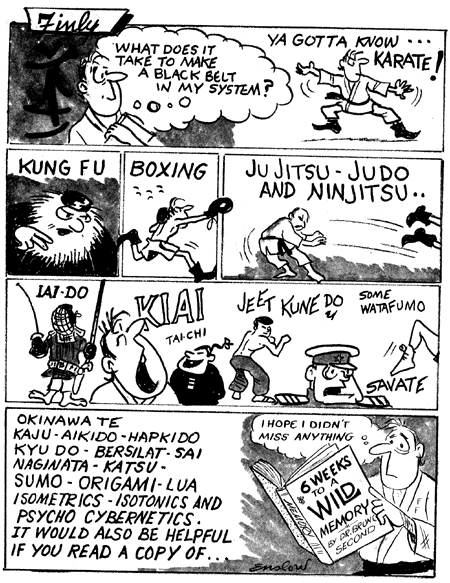 Finly
WHAT DOES IT
TAKE TO MAKE
A BLACK BELT
IN MY SYSTEM?
YA GOTTA KNOW ...
KARATE!
KUNG FU
BOXING
JUJITSU - JUDO
AND NINJITSU..
IAI-DO
KIAI
TAI-CHI
JEET KUNE DO
SOME
WATAFUMO
SAVATE
OKINAWA TE
KAJU-AIKIDO-HAPKIDO
KYU DO - BERSILAT - SAI
NAGINATA - KATSU -
SUMO - ORIGAMI - LUA
ISOMETRICS - ISOTONICS AND
PSYCHO CYBERNETICS.
IT WOULD ALSO BE HELPFUL
IF YOU READ A COPY OF...
I HOPE I DIDN'T
MISS ANYTHING
6 WEEKS
TO A
WILD
MEMORY
BY DR. BRUNO
SECOND
MEMORY
Enslow